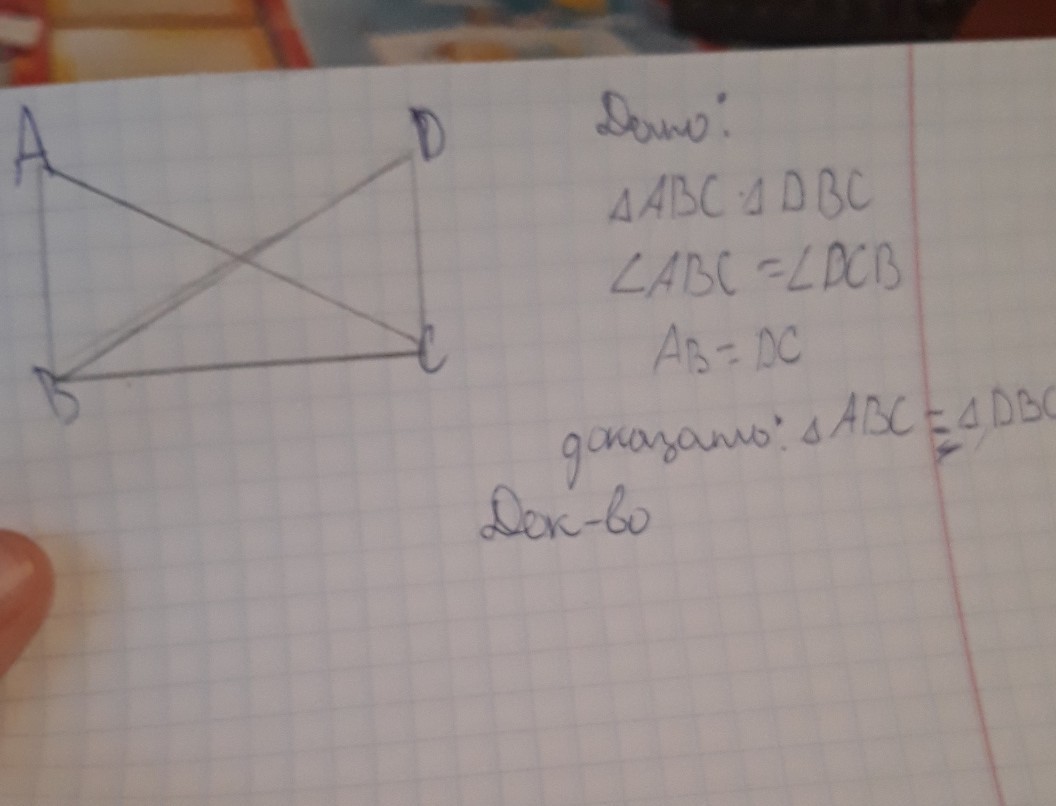 A
D
B
C
Дано:
△ABC △DBC
∠ABC = ∠DCB
AB = DC
доказать: △ABC = △DBC
Док-во